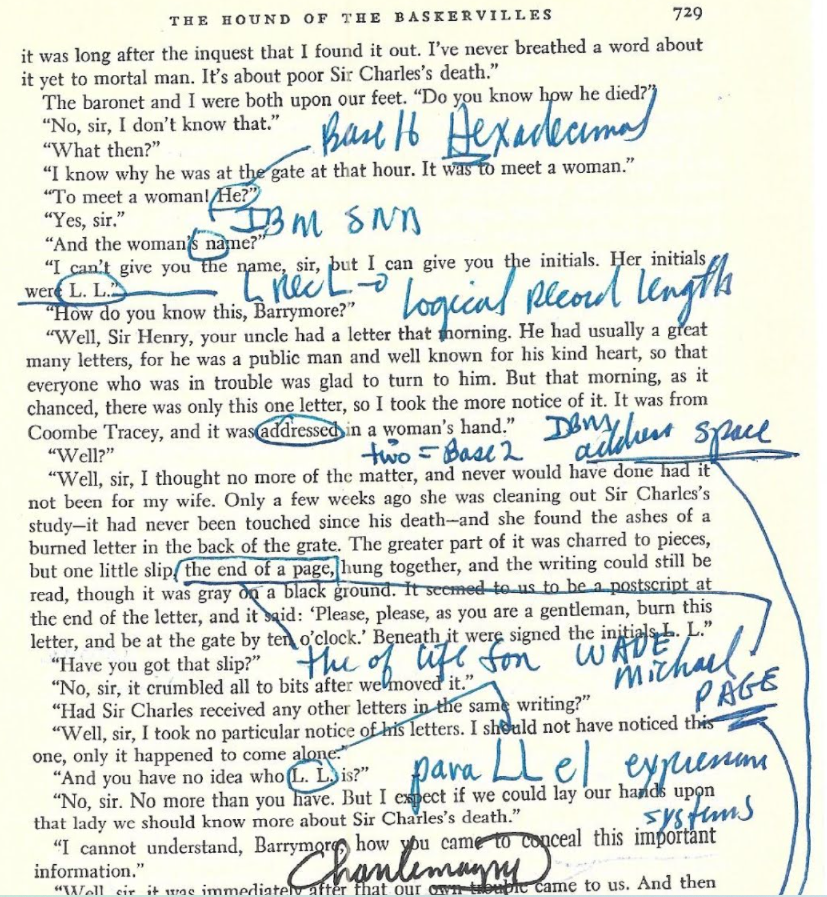 THE HOUND OF THE BASKERVILLES 729
it was long after the inquest that I found it out. I've never breathed a word about
it yet to mortal man. It's about poor Sir Charles's death."
The baronet and I were both upon our feet. "Do you know how he died?"
"No, sir, I don't know that."
Base 16 Hexadecimal
"What then?"
"I know why he was at the gate at that hour. It was to meet a woman."
"To meet a woman! He?"
"Yes, sir."
IBM SNA
"And the woman's name?"
"I can't give you the name, sir, but I can give you the initials. Her initials
were L. L."
LRECL → Logical Record Length
"How do you know this, Barrymore?"
"Well, Sir Henry, your uncle had a letter that morning. He had usually a great
many letters, for he was a public man and well known for his kind heart, so that
everyone who was in trouble was glad to turn to him. But that morning, as it
chanced, there was only this one letter, so I took the more notice of it. It was from
Coombe Tracey, and it was addressed in a woman's hand."
IBM
address space
"Well?"
two = Base 2
"Well, sir, I thought no more of the matter, and never would have done had it
not been for my wife. Only a few weeks ago she was cleaning out Sir Charles's
study—it had never been touched since his death—and she found the ashes of a
burned letter in the back of the grate. The greater part of it was charred to pieces,
but one little slip, the end of a page, hung together, and the writing could still be
read, though it was gray on a black ground. It seemed to us to be a postscript at
the end of the letter, and it said: 'Please, please, as you are a gentleman, burn this
letter, and be at the gate by ten o'clock.' Beneath it were signed the initials L. L."
"Have you got that slip?"
the of life for WADE
Michael
PAGE
"No, sir, it crumbled all to bits after we moved it."
"Had Sir Charles received any other letters in the same writing?"
"Well, sir, I took no particular notice of his letters. I should not have noticed this
one, only it happened to come alone."
"And you have no idea who L. L. is?"
paraLLel expression
systems
"No, sir. No more than you have. But I expect if we could lay our hands upon
that lady we should know more about Sir Charles's death."
"I cannot understand, Barrymore, how you came to conceal this important
information."
Charlemagne
"Well, sir, it was immediately after that our own trouble came to us. And then